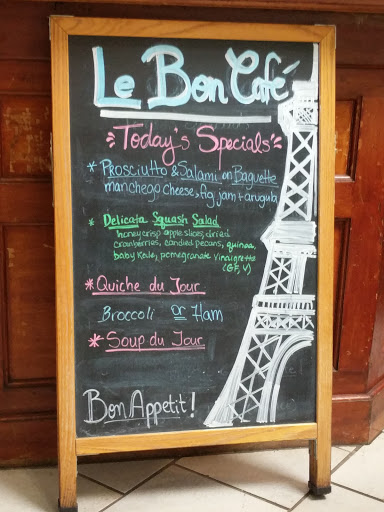 Le Bon Café
Today's Specials
* Prosciutto & Salami on Baguette
manchego cheese, fig jam + arugula
* Delicata Squash Salad
honeycrisp apple slices, dried
cranberries, candied pecans, quinoa,
baby kale, pomegranate vinaigrette
(GF, V)
* Quiche du Jour
Broccoli or Ham
* Soup du Jour
Bon Appetit!